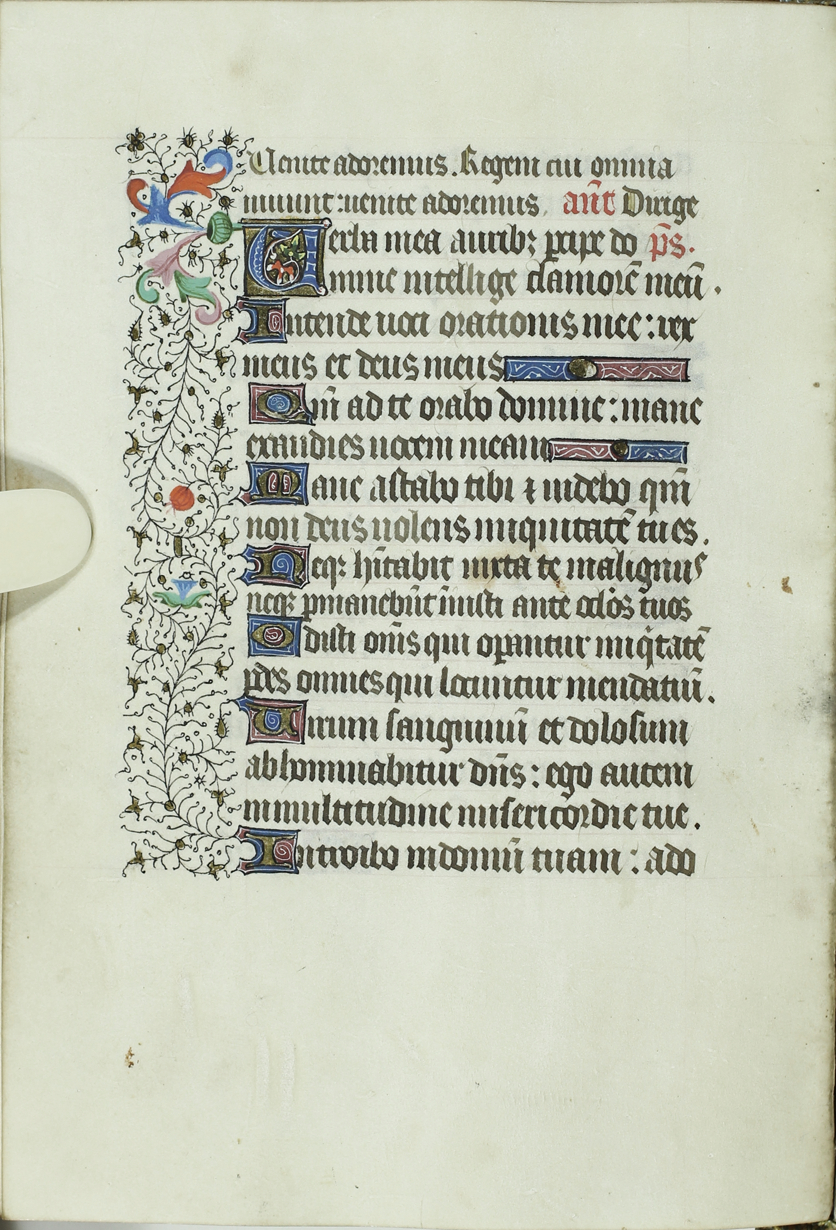 Uenite adoremus. Regem cui omnia
uiuunt: uenite adoremus. añt Dirige
Uerba mea auribꝫ ꝑcipe do p̄s.
mine intellige clamorē meū.
Intende uoci orationis mee: rex
meus et deus meus
Qm̄ ad te orabo domine: mane
exaudies uocem meam
Mane astabo tibi ⁊ uidebo qm̄
non deus uolens iniquitatē tu es.
Neqꝫ hītabit iuxta te malignus
neqꝫ ꝑmanebūt iniusti ante oclōs tuos
Odisti om̄s qui operantur iniq̄tatē
ꝑdes omnes qui locuntur mendatiū.
Uirum sanguinū et dolosum
abhominabitur dn̄s: ego autem
in multitudine misericordie tue.
Introibo in domū tuam: ado